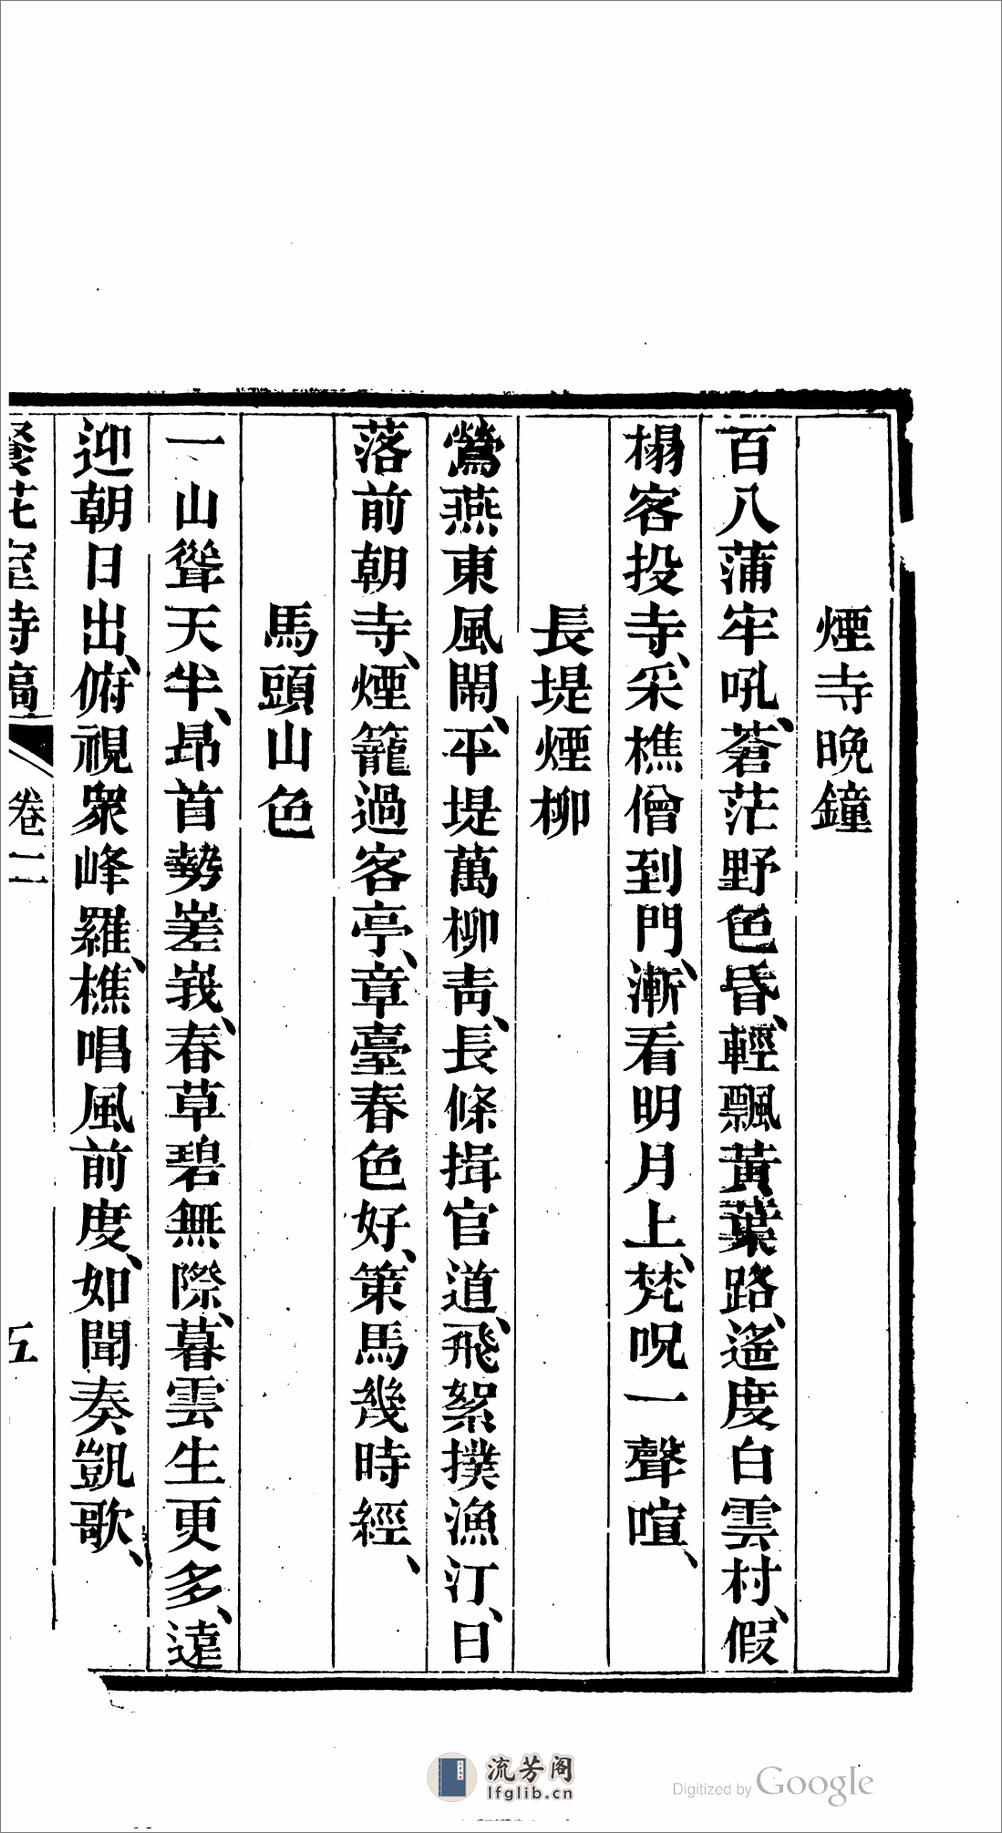 煙寺晚鐘
百八蒲牢吼、蒼茫野色昏、輕飄黃葉路、遙度白雲村、假
榻客投寺、采樵僧到門、漸看明月上、梵呪一聲喧、
長堤煙柳
鶯燕東風鬧、平堤萬柳靑、長條揖官道、飛絮撲漁汀、日
落前朝寺、煙籠過客亭、章臺春色好、策馬幾時經、
馬頭山色
一山聳天半、昂首勢嵳峩、春草碧無際、暮雲生更多、遠
迎朝日出、俯視衆峰羅、樵唱風前度、如聞奏凱歌、
餐花室詩稿 卷二 五
流芳阁
lfglib.cn
Digitized by Google